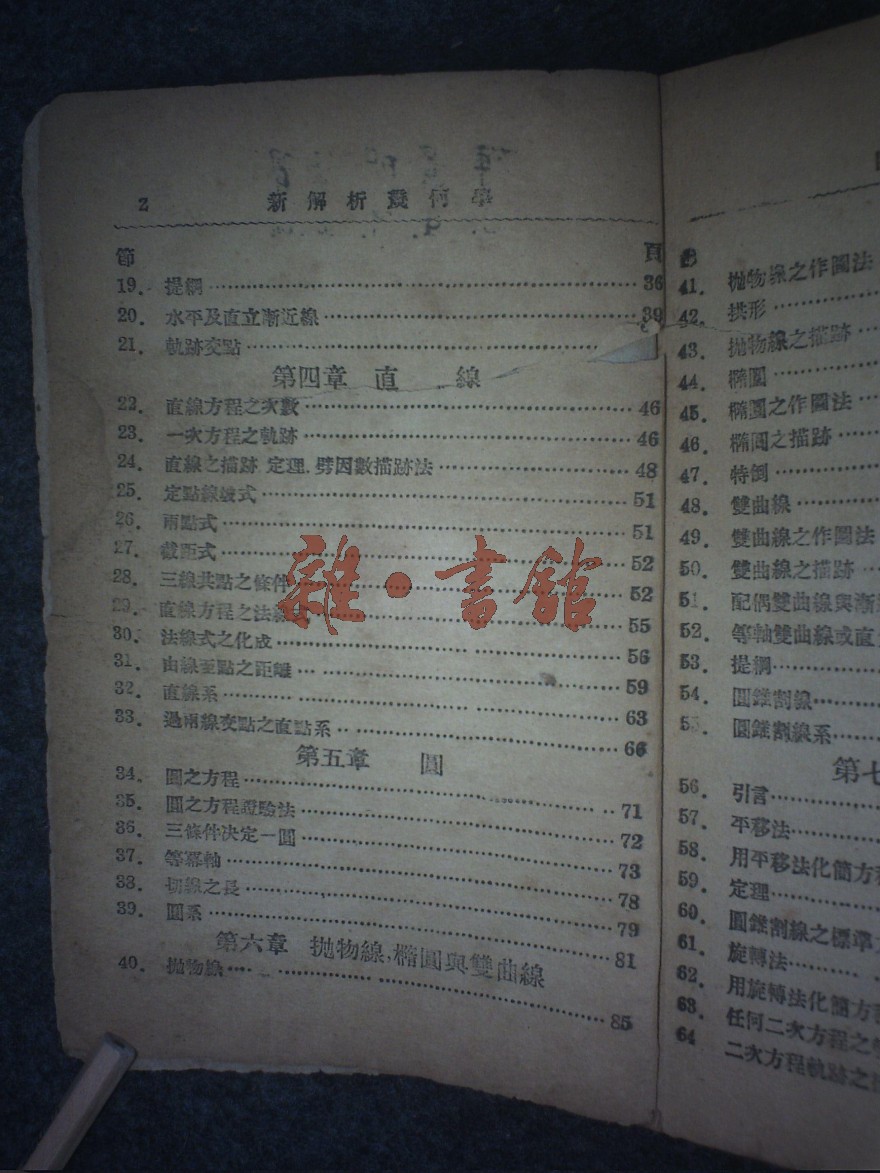 2 新解析幾何學
節 頁
19. 提綱 36
20. 水平及直立漸近線 39
21. 軌跡交點
第四章 直線
22. 直線方程之次數 46
23. 一次方程之軌跡 46
24. 直線之描跡 定理.劈因數描跡法 48
25. 定點線坡式 51
26. 兩點式 51
27. 截距式 52
28. 三線共點之條件 52
29. 直線方程之法線 55
30. 法線式之化成 56
31. 由線至點之距離 59
32. 直線系 63
33. 過兩線交點之直點系 66
第五章 圓
34. 圓之方程 71
35. 圓之方程證驗法 72
36. 三條件决定一圓 73
37. 等冪軸 78
38. 切線之長 79
39. 圓系 81
第六章 拋物線,橢圓與雙曲線
40. 拋物線 85
41. 拋物線之作圖法
42. 拱形
43. 拋物線之描跡
44. 橢圓
45. 橢圓之作圖法
46. 橢圓之描跡
47. 特例
48. 雙曲線
49. 雙曲線之作圖法
50. 雙曲線之描跡
51. 配偶雙曲線與漸
52. 等軸雙曲線或直
53. 提綱
54. 圓錐割線
55. 圓錐割線系
第七
56. 引言
57. 平移法
58. 用平移法化簡方程
59. 定理
60. 圓錐割線之標準
61. 旋轉法
62. 用旋轉法化簡方程
63. 任何二次方程之
64 二次方程軌跡之
雜·書館